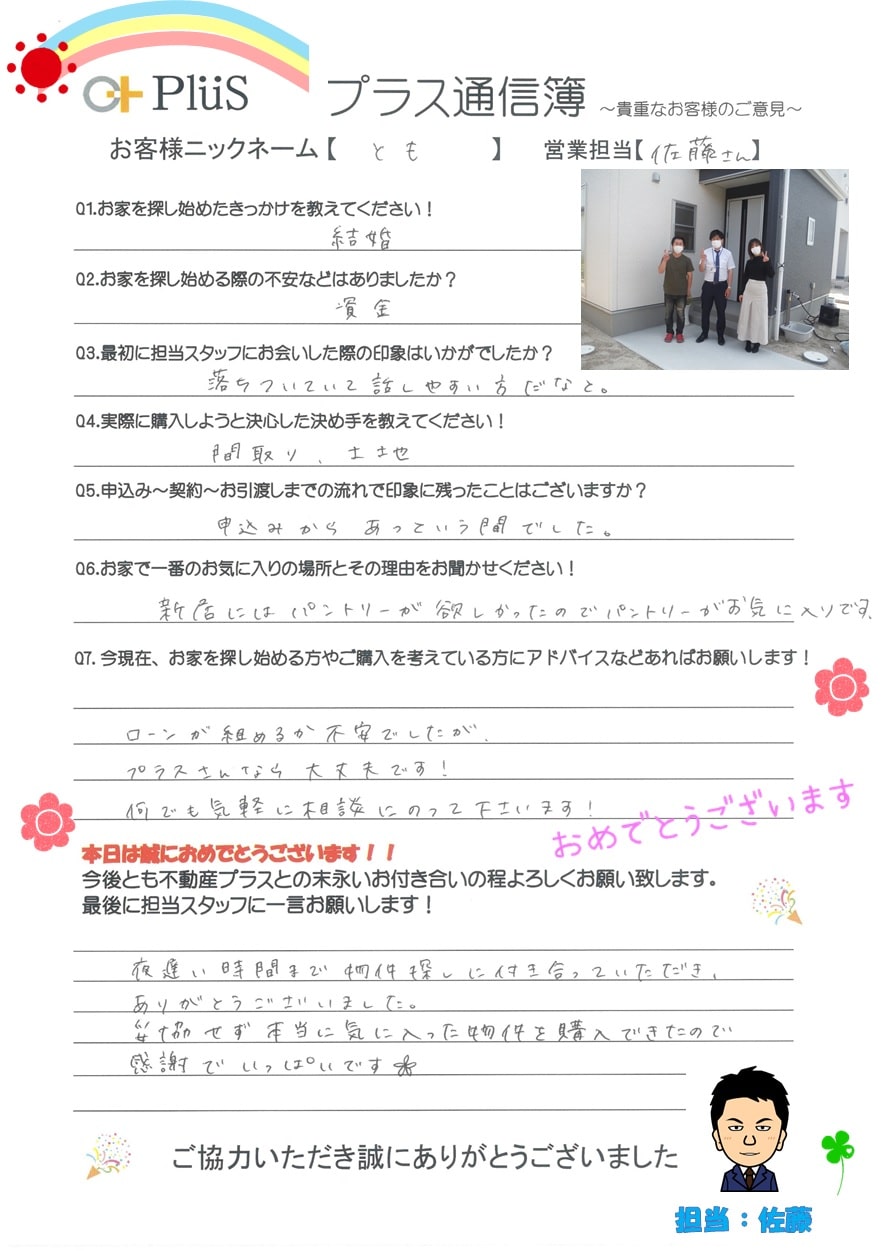 PlüS プラス通信簿 ～貴重なお客様のご意見～
お客様ニックネーム【 とも 】 営業担当【佐藤さん】
Q1.お家を探し始めたきっかけを教えてください！
結婚
Q2.お家を探し始める際の不安などはありましたか？
資金
Q3.最初に担当スタッフにお会いした際の印象はいかがでしたか？
落ちついていて話しやすい方だなと。
Q4.実際に購入しようと決心した決め手を教えてください！
間取り、土地
Q5.申込み～契約～お引渡しまでの流れで印象に残ったことはございますか？
申込みからあっという間でした。
Q6.お家で一番のお気に入りの場所とその理由をお聞かせください！
新居にはパントリーが欲しかったのでパントリーがお気に入りです。
Q7. 今現在、お家を探し始める方やご購入を考えている方にアドバイスなどあればお願いします！
ローンが組めるか不安でしたが、
プラスさんなら大丈夫です！
何でも気軽に相談にのって下さいます！
おめでとうございます
本日は誠におめでとうございます！！
今後とも不動産プラスとの末永いお付き合いの程よろしくお願い致します。
最後に担当スタッフに一言お願いします！
夜遅い時間まで物件探しに付き合っていただき、
ありがとうございました。
妥協せず本当に気に入った物件を購入できたので
感謝でいっぱいです
ご協力いただき誠にありがとうございました
担当：佐藤